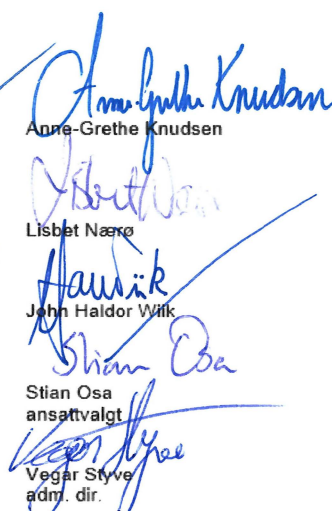 Anne-Grethe Knudsen
Anne-Grethe Knudsen
Lisbet Nærø
John Haldor Wiik
Stian Osa
Stian Osa
ansattvalgt
Vegar Styve
Vegar Styve
adm. dir.